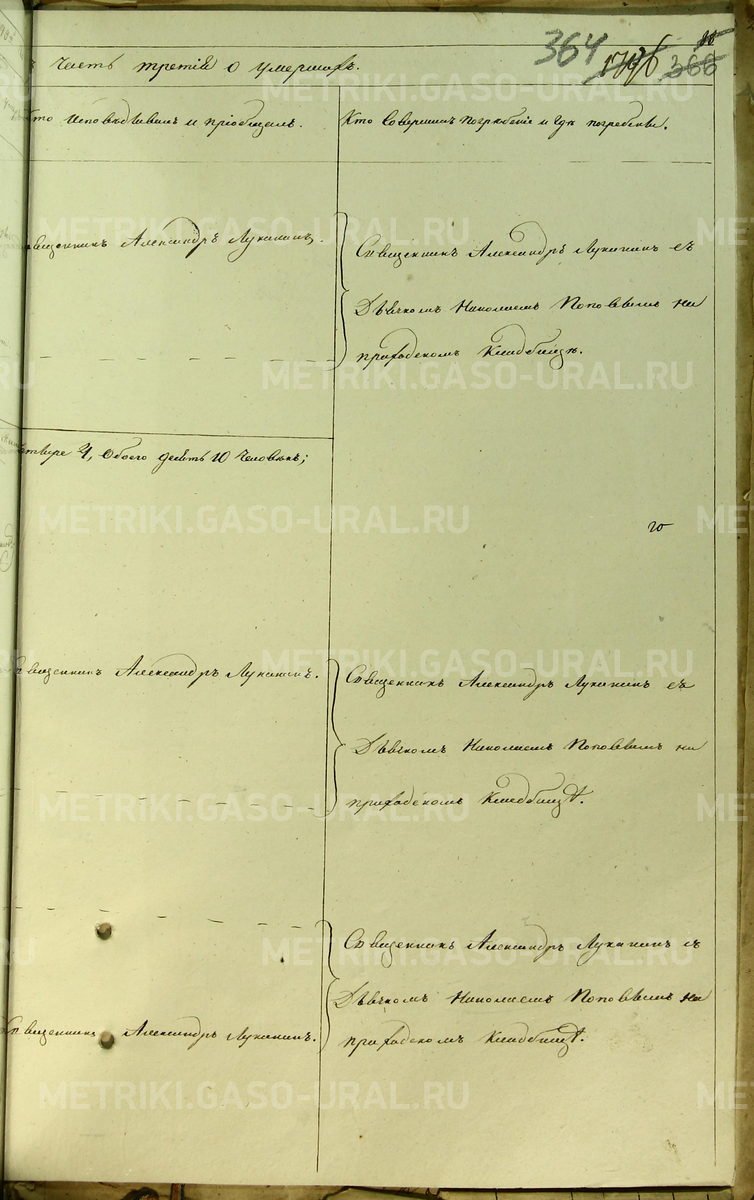 364
366
Часть третія о умершихъ.
Кто исповѣдывалъ и пріобщалъ.
Кто совершалъ погребеніе и гдѣ погребены.
Священникъ Александръ Луканинъ.
Священникъ Александръ Луканинъ съ
Дьячкомъ Николаемъ Поповымъ на
приходскомъ кладбищѣ.
четыре 4, обоего десять 10 человѣкъ;
Священникъ Александръ Луканинъ.
Священникъ Александръ Луканинъ съ
Дьячкомъ Николаемъ Поповымъ на
приходскомъ кладбищѣ.
Священникъ Александръ Луканинъ съ
Дьячкомъ Николаемъ Поповымъ на
приходскомъ кладбищѣ.
Священникъ Александръ Луканинъ.
METRIKI.GASO-URAL.RU